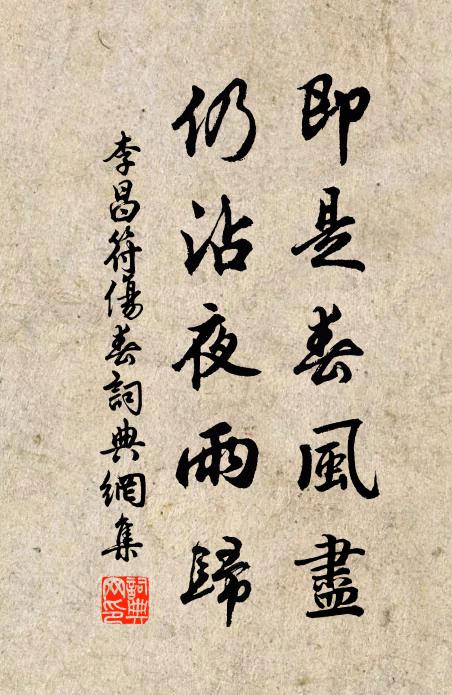 即是春風盡
仍沾夜雨歸
李昌符傷春詞典網集
詞典網印